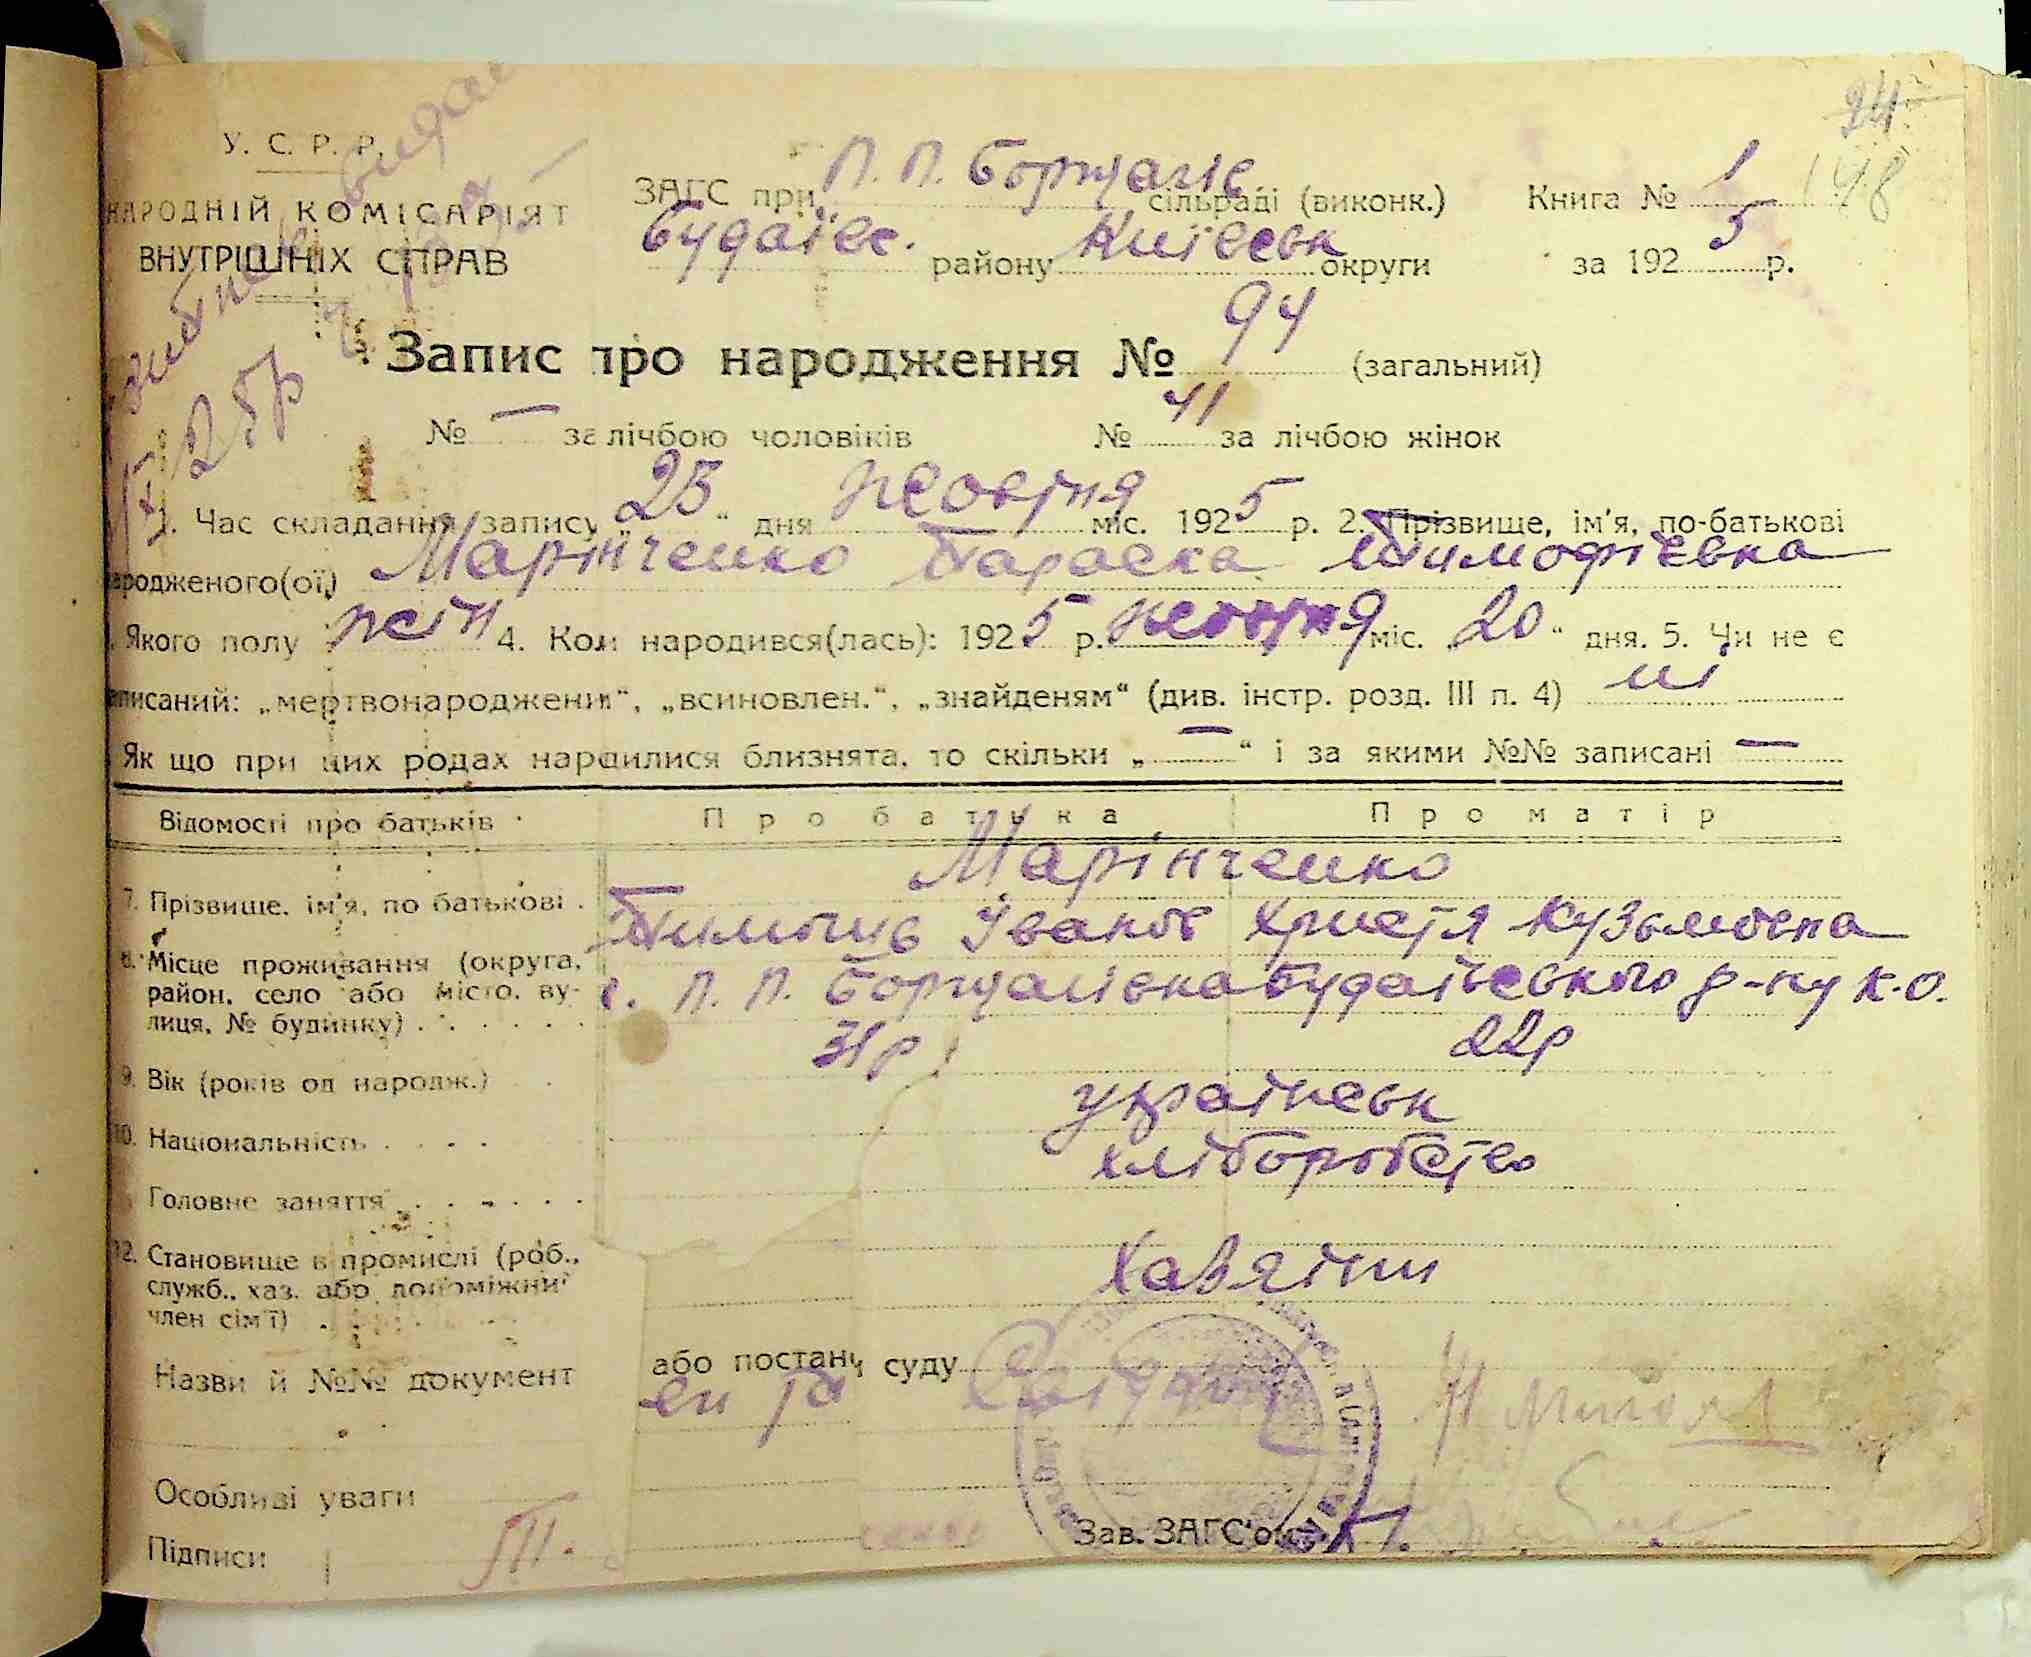 94
148
У. С. Р. Р.
НАРОДНІЙ КОМІСАРІЯТ
ВНУТРІШНІХ СПРАВ
ЗАГС при П. П. Борщагів сільраді (виконк.) Книга № 1
Будаївс. району Київськ округи за 1925 р.
Запис про народження № 94 (загальний)
№ — за лічбою чоловіків № 41 за лічбою жінок
1. Час складання запису „25“ дня жовтня міс. 1925 р. 2. Прізвище, ім'я, по-батькові
народженого(ої) Марінченко Параска Тимофієвна
Якого полу жін 4. Коли народився(лась): 1925 р. жовтня міс. „20“ дня. 5. Чи не є
записаний: „мертвонароджени“, „всиновлен.“, „знайденям“ (див. інстр. розд. III п. 4) ні
Як що при цих родах народилися близнята, то скільки „—“ і за якими №№ записані —
Відомості про батьків Про батька Про матір
7. Прізвище, ім'я, по батькові . Марінченко
Тимошь Іванов Христя Кузьмовна
8. Місце проживання (округа, район, село або місто, вулиця, № будинку) . . . . . . с. П. П. Борщагівка Будаївського р-ну К.О.
9. Вік (років од народж.) . . 31р 22р
10. Національність . . . . українськ
Головне заняття . . . . . . хліборобство
12. Становище в промислі (роб., служб., хаз. або допоміжний член сім'ї) . . . . Хазяіни
Назви й №№ документ або постану суду
Особливі уваги
Підписи: Зав. ЗАГС'ом